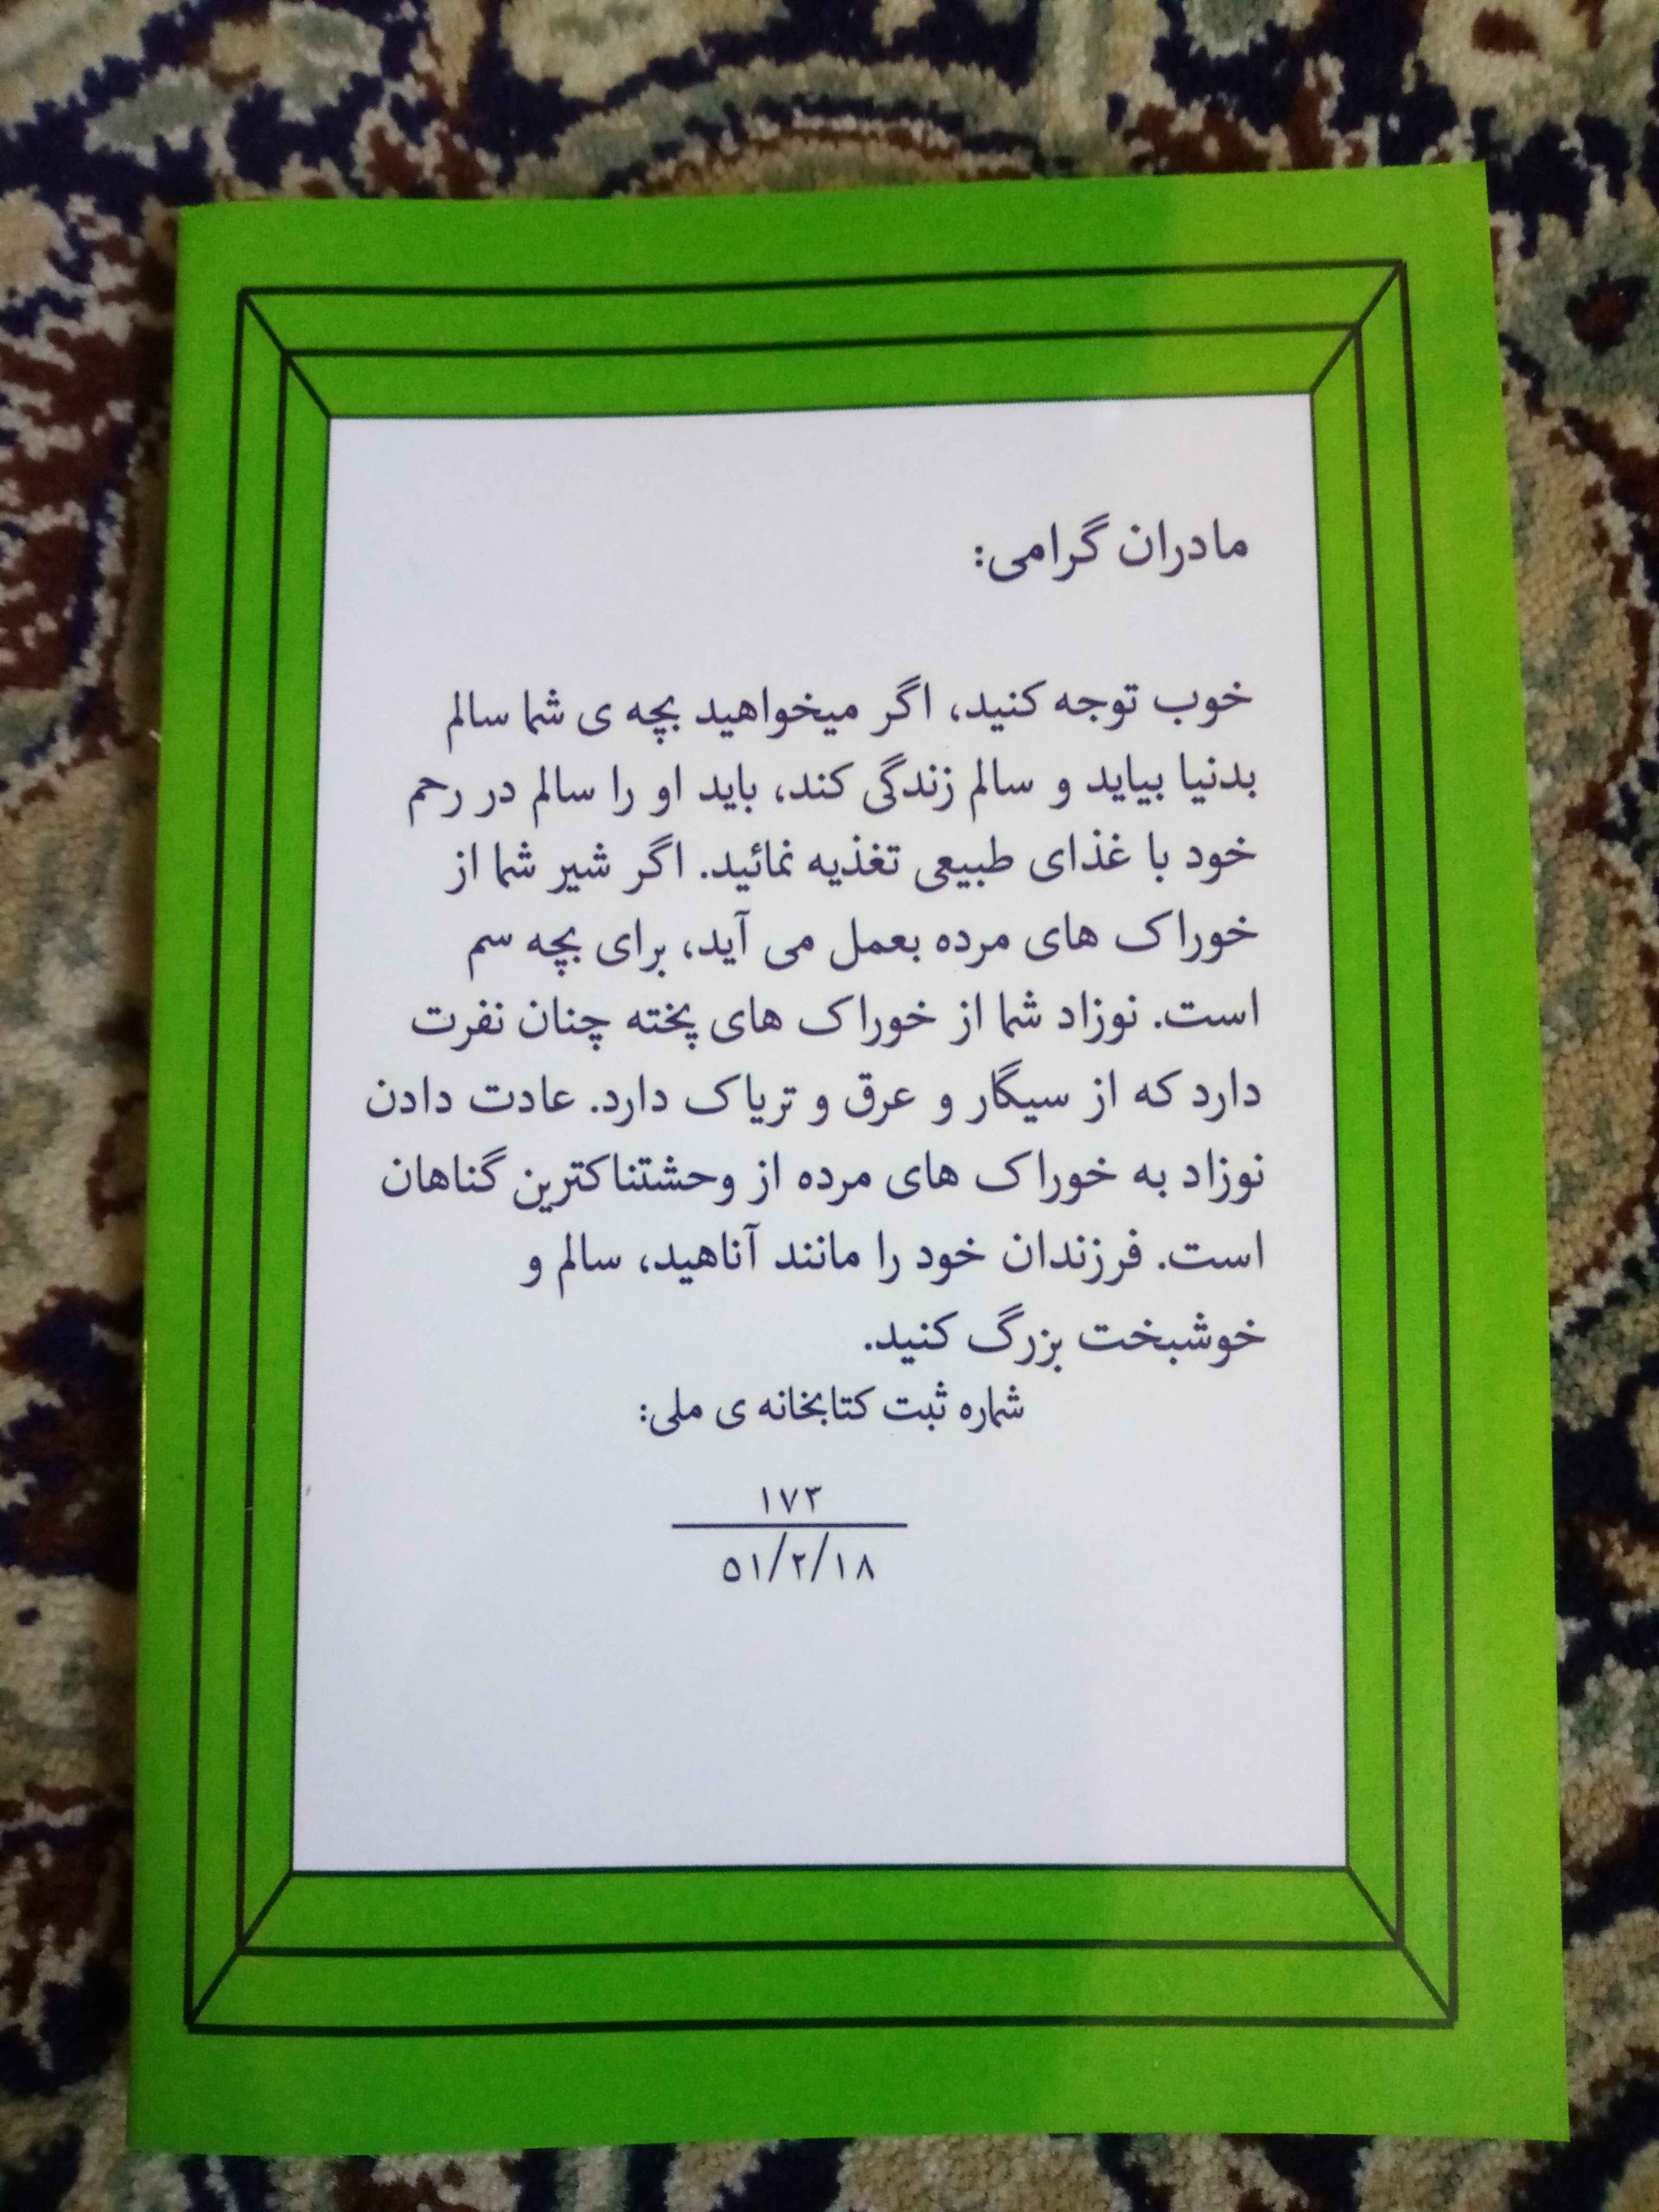 مادران گرامی:
خوب توجه کنید، اگر میخواهید بچه ی شما سالم
بدنیا بیاید و سالم زندگی کند، باید او را سالم در رحم
خود با غذای طبیعی تغذیه نمائید. اگر شیر شما از
خوراک های مرده بعمل می آید، برای بچه سم
است. نوزاد شما از خوراک های پخته چنان نفرت
دارد که از سیگار و عرق و تریاک دارد. عادت دادن
نوزاد به خوراک های مرده از وحشتناکترین گناهان
است. فرزندان خود را مانند آناهید، سالم و
خوشبخت بزرگ کنید.
شماره ثبت کتابخانه ی ملی:
۱۷۳
۵۱/۲/۱۸